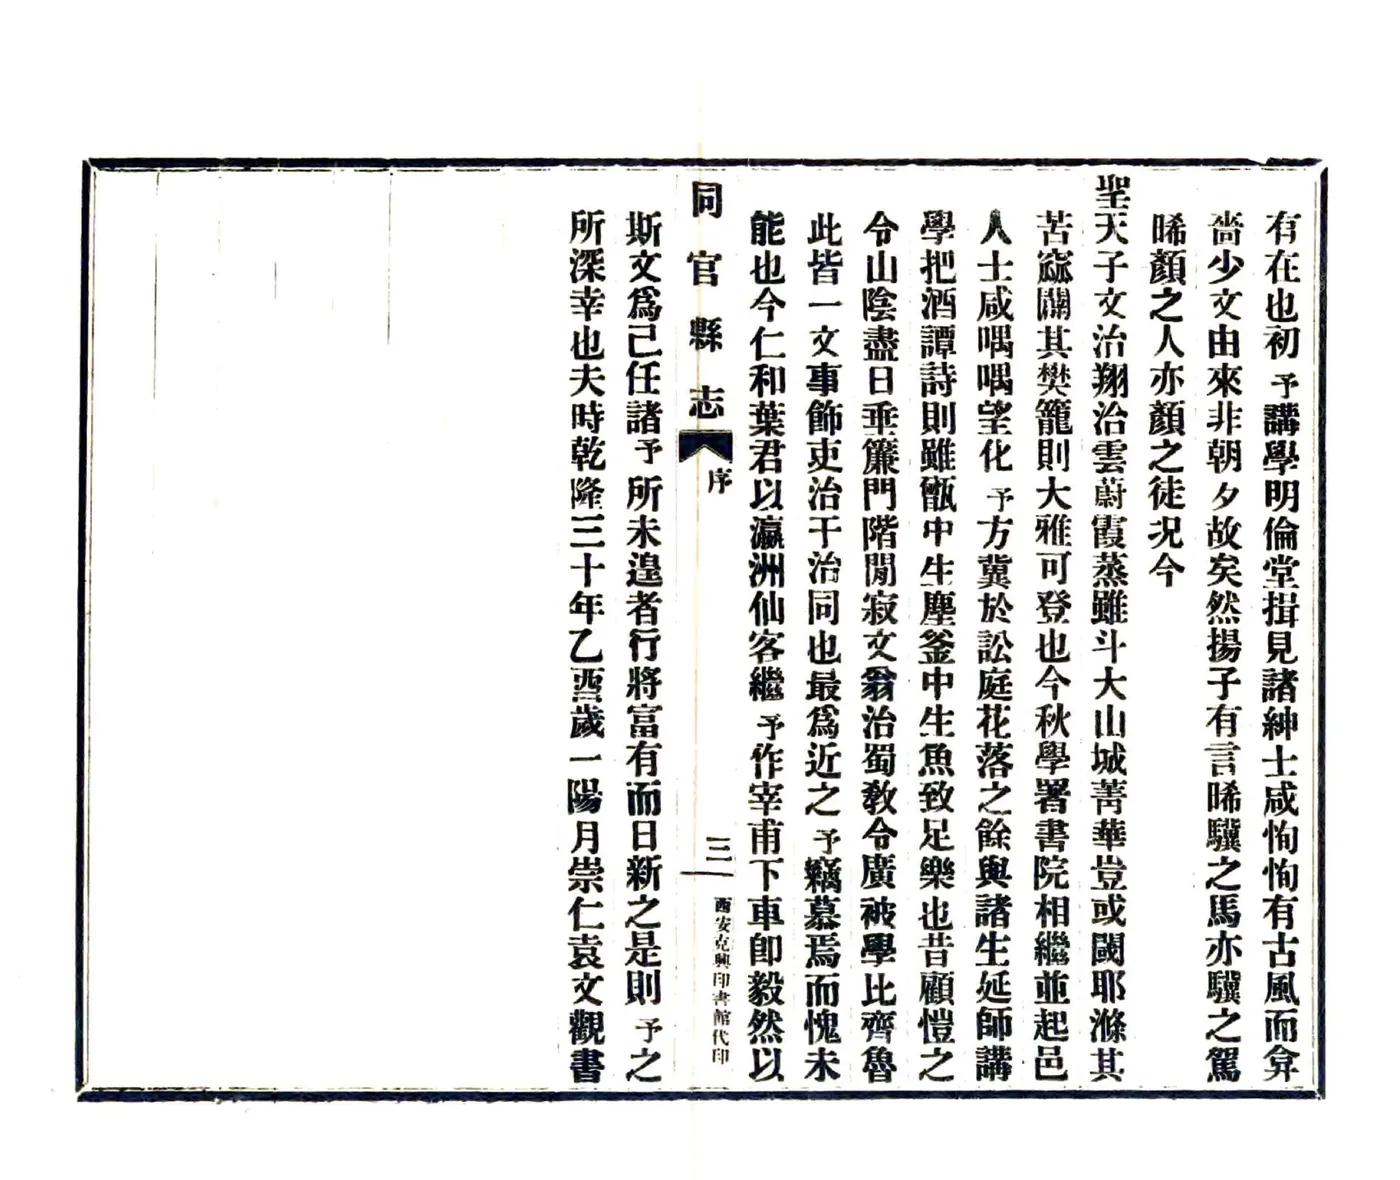 有在也初予講學明倫堂揖見諸紳士咸恂恂有古風而弇
嗇少文由來非朝夕故矣然揚子有言晞驥之馬亦驥之駕
晞顏之人亦顏之徒况今
聖天子文治翔洽雲蔚霞蒸雖斗大山城菁華豈或閟耶滌其
苦窳闢其樊籠則大雅可登也今秋學署書院相繼並起邑
人士咸喁喁望化予方冀於訟庭花落之餘與諸生延師講
學把酒譚詩則雖甑中生塵釜中生魚致足樂也昔顧愷之
令山陰盡日垂簾門階閒寂文翁治蜀敎令廣被學比齊魯
此皆一文事飾吏治干治同也最爲近之予竊慕焉而愧未
能也今仁和葉君以瀛洲仙客繼予作宰甫下車卽毅然以
同官縣志
序
三
西安克興印書館代印
斯文爲己任諸予所未遑者行將富有而日新之是則予之
所深幸也夫時乾隆三十年乙酉歲一陽月崇仁袁文觀書